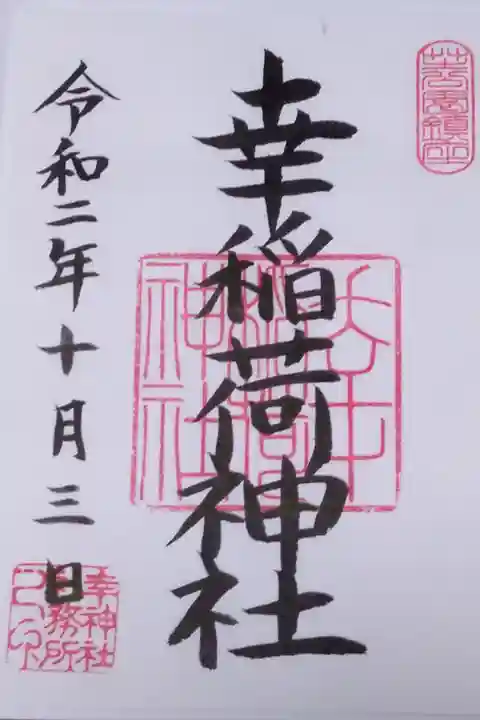 幸稲荷神社
令和二年十月三日
幸神社
社務所
之印